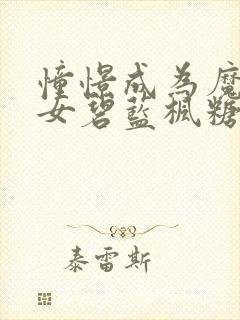 憧憬成為魔
女碧藍楓糖
泰雷斯